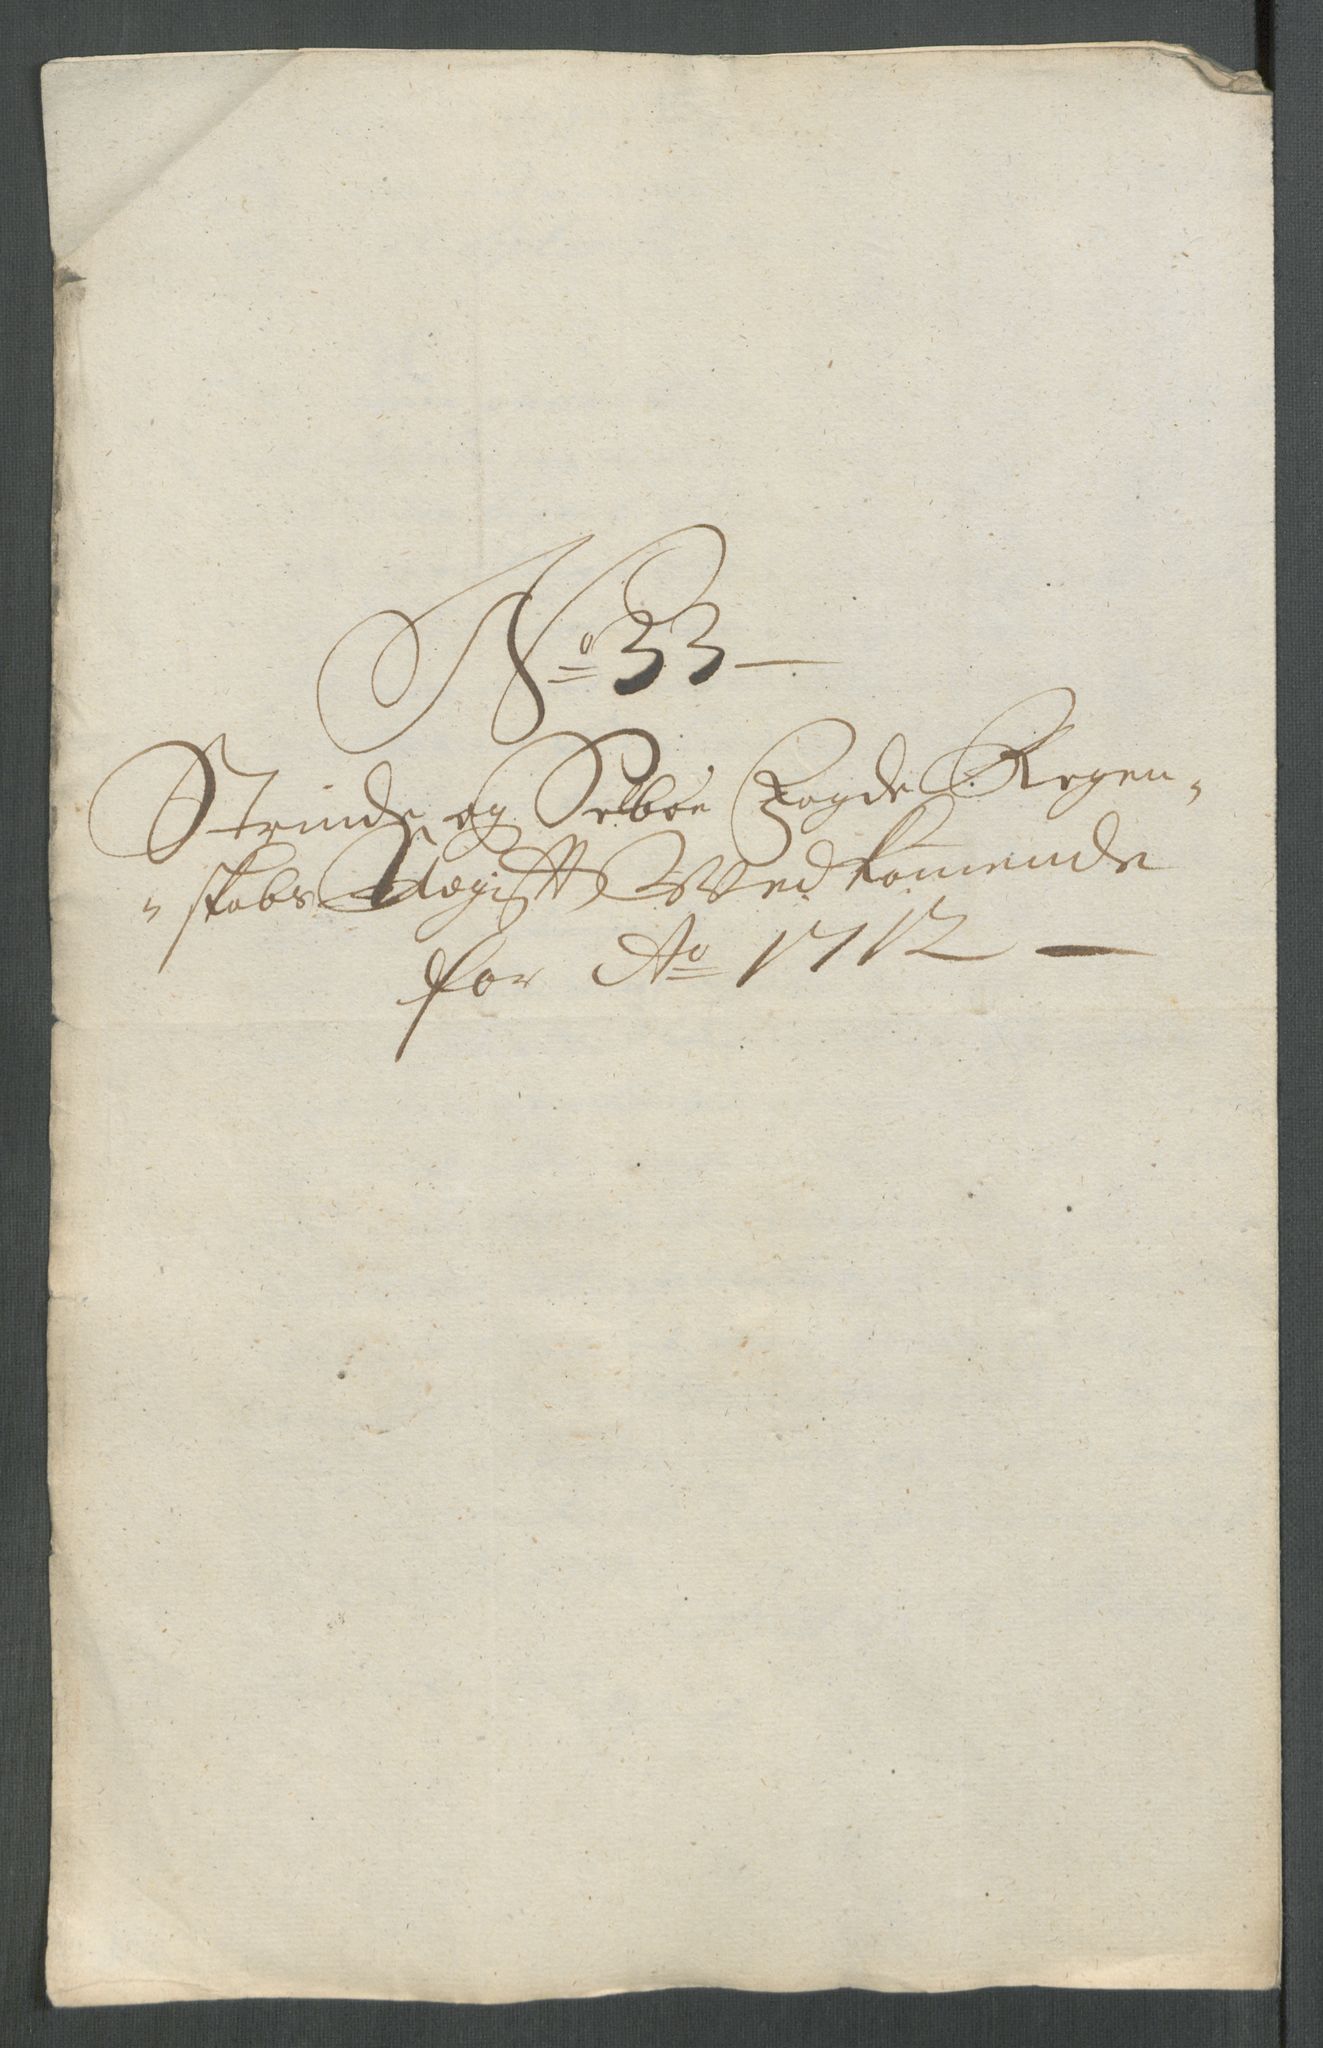 No 33 —
Strinde og Selboe Fogde Regen-
-skabs Vedkomende
for Ao 1712 —